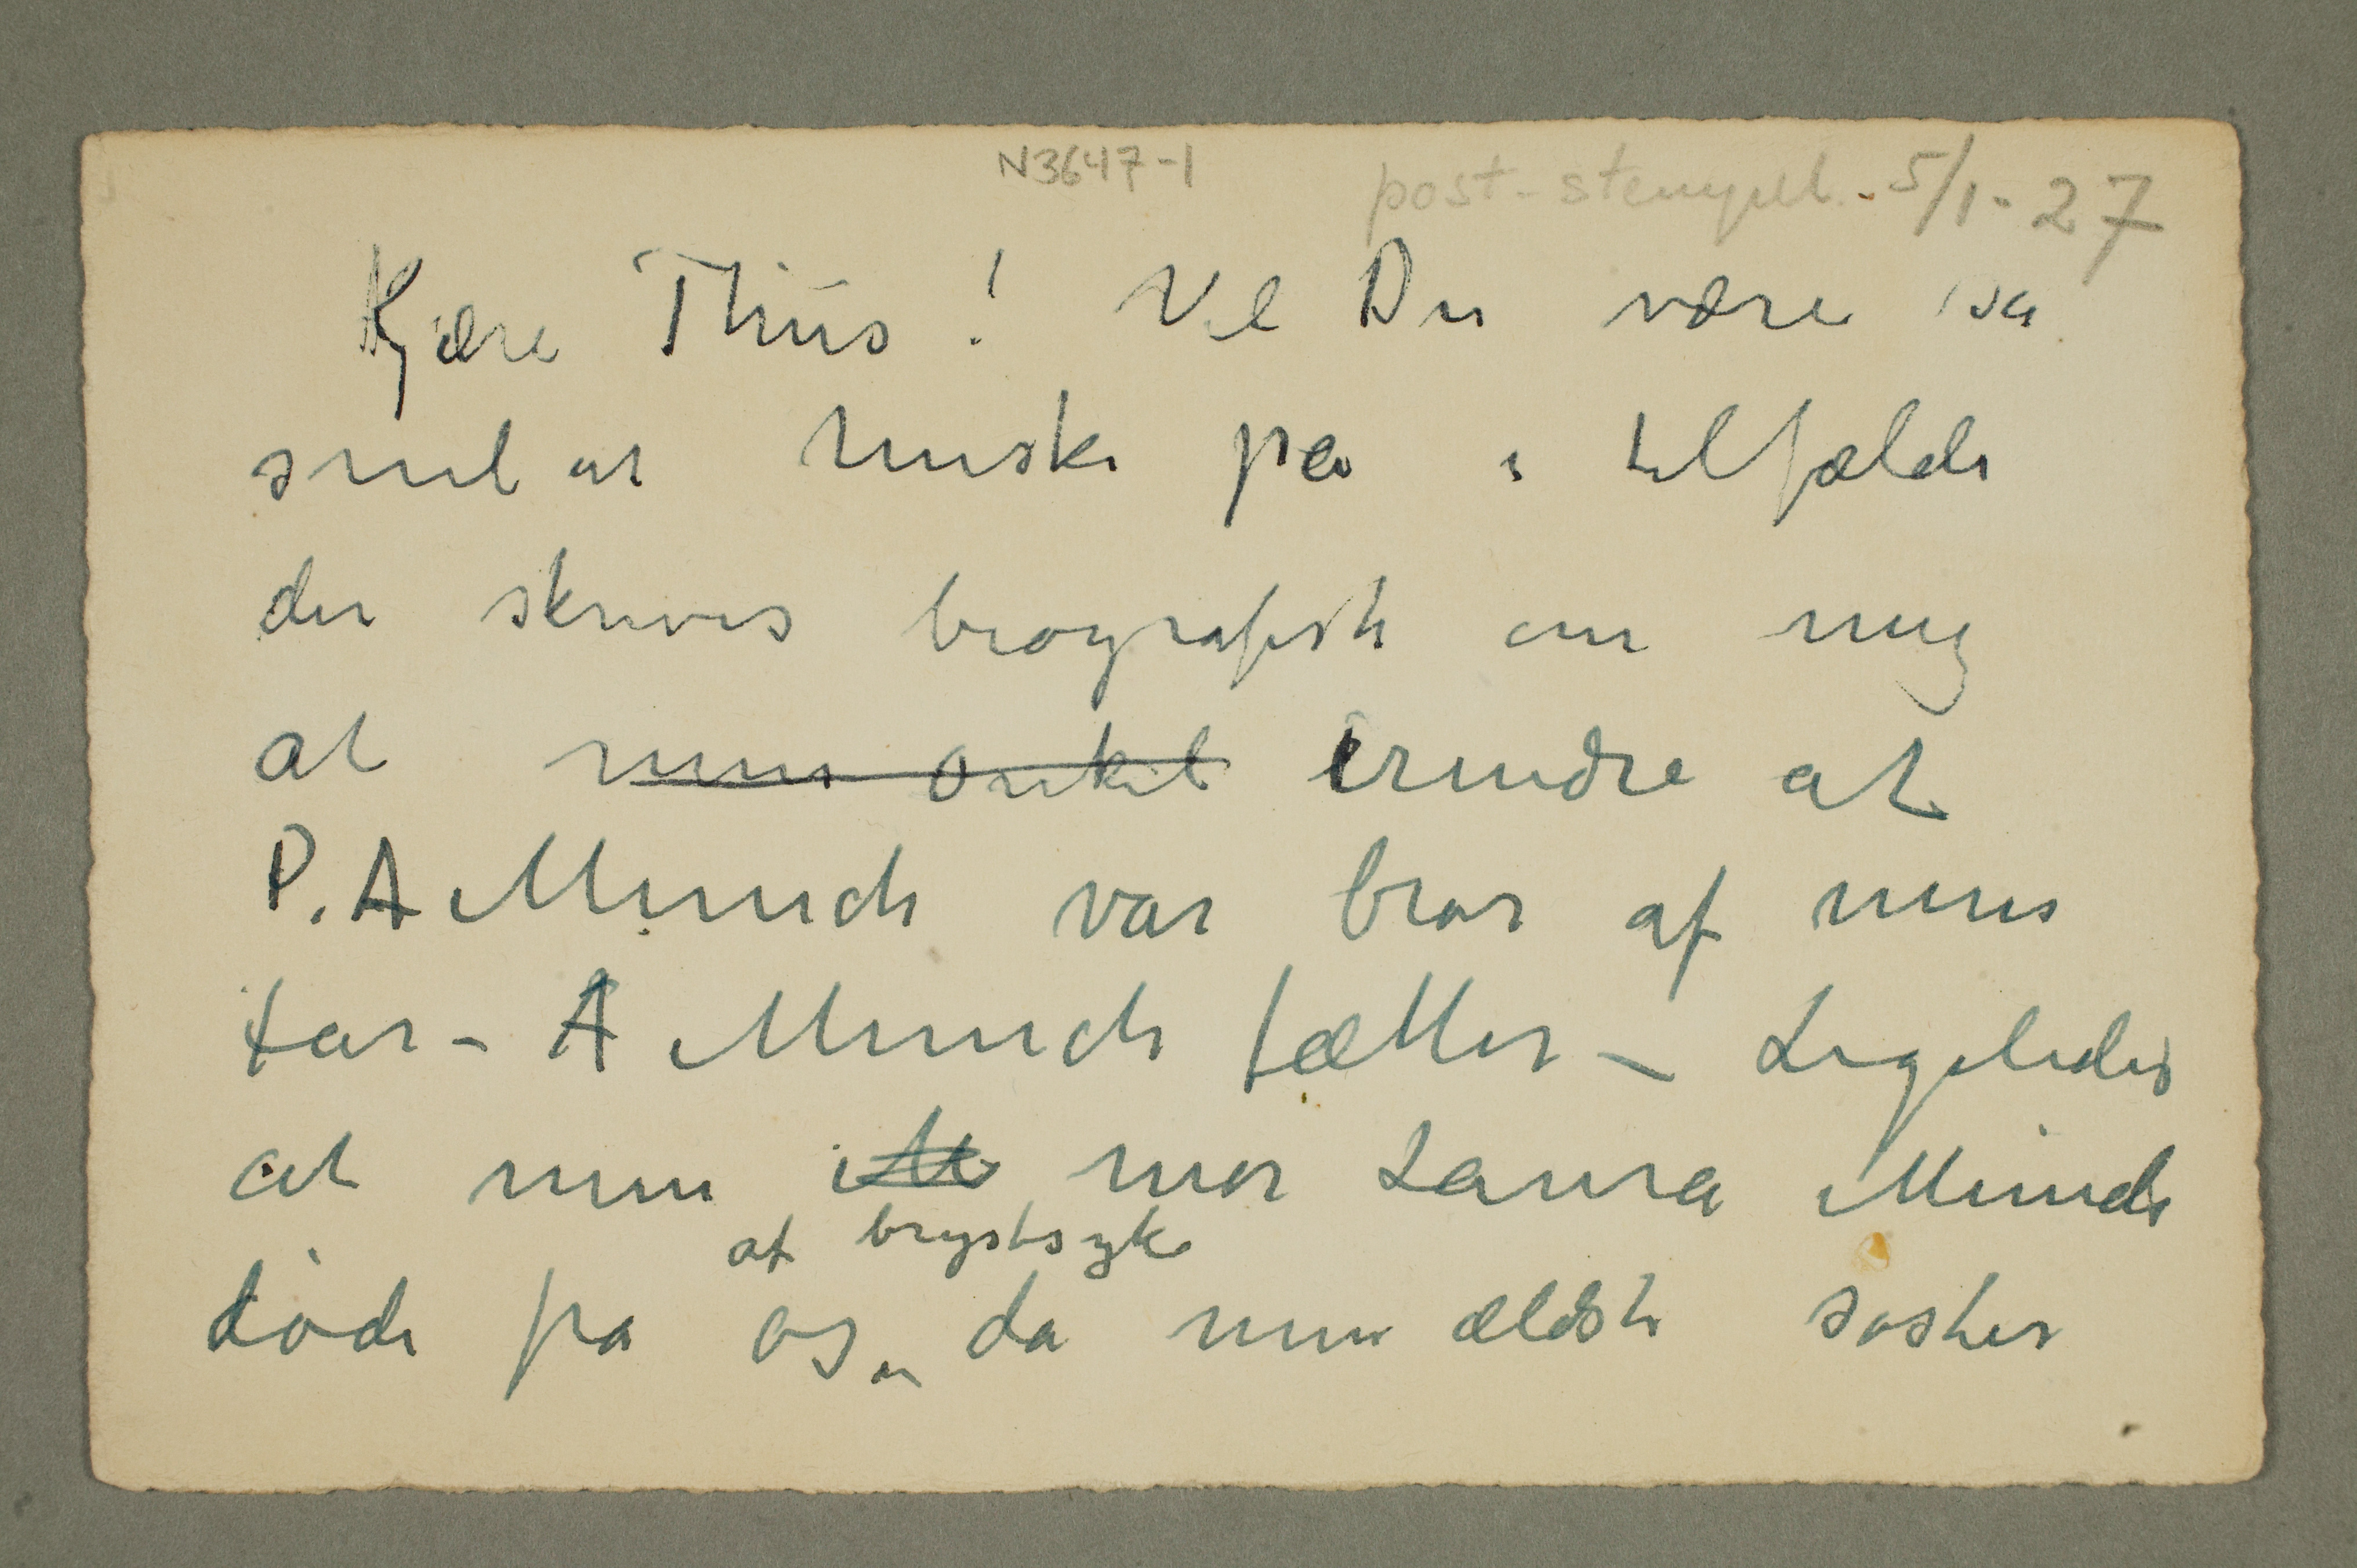 N3647-1
post-stempel. 5/1-27
Kjære Thiis! Vil Du være så
snil at huske på i tilfælde
der skrives biografisk om mig
at min onkel erindre at
P. A Munch var bror af min
far – A Munch fætter – Ligeledes
at min M mor Laura Munch
af brystsyke
døde fra os – da min ældste søster